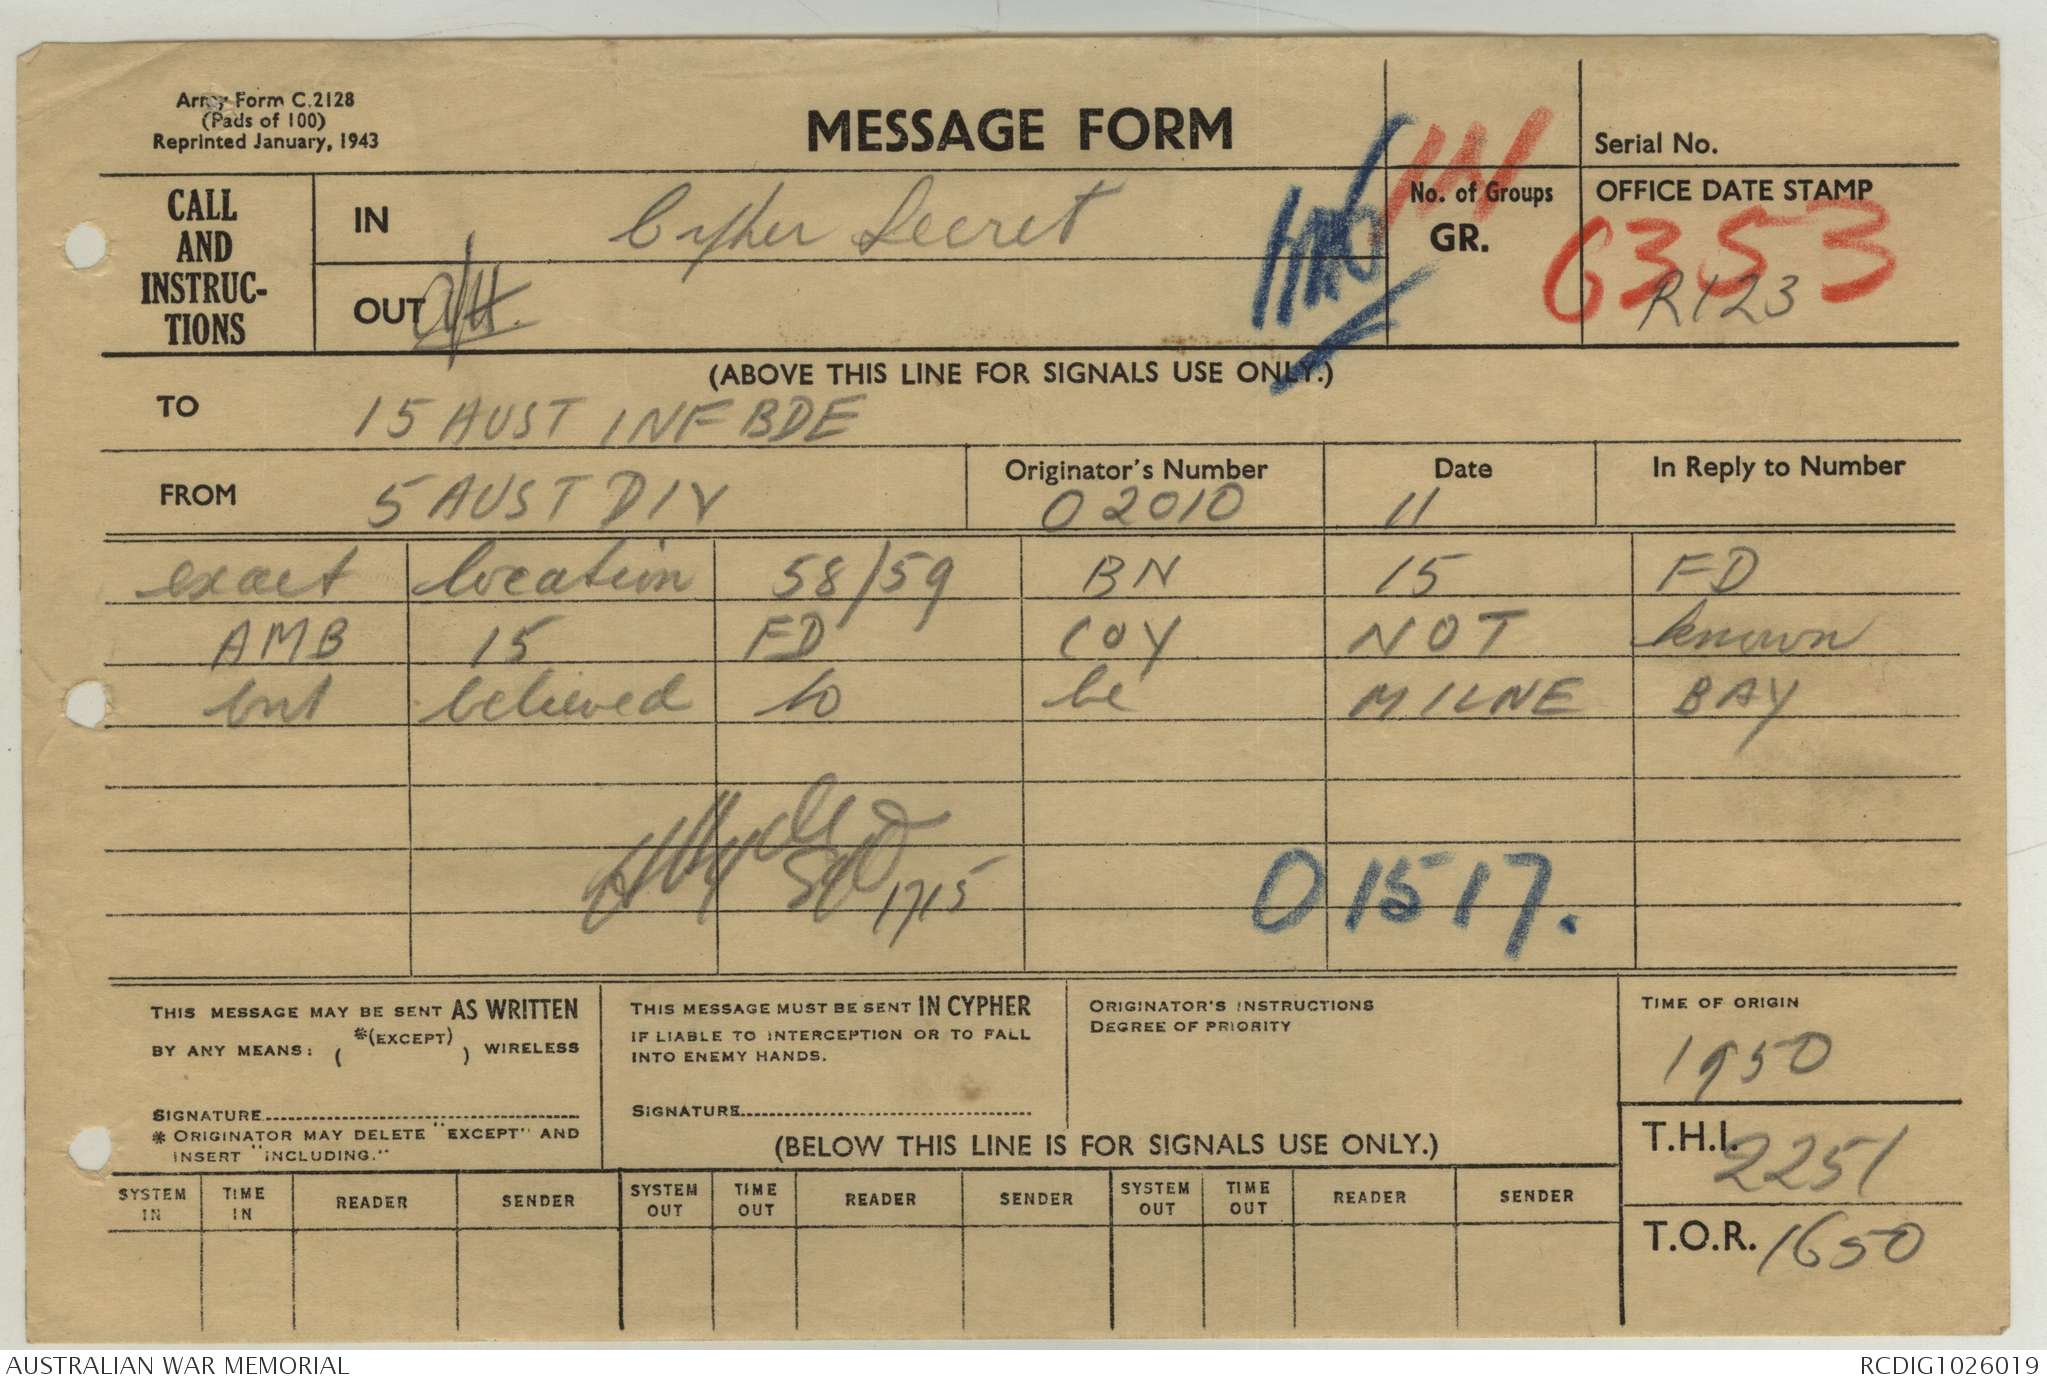 Army Form C.2128
(Pads of 100)
Reprinted January, 1943
MESSAGE FORM
Serial No.
CALL AND INSTRUC-TIONS
IN Cypher Secret
OUT
No. of Groups
GR.
OFFICE DATE STAMP
6353
R123
(ABOVE THIS LINE FOR SIGNALS USE ONLY.)
TO 15 AUST INF BDE
FROM 5 AUST DIV
Originator's Number 02010
Date 11
In Reply to Number
exact location 58/59 BN 15 FD
AMB 15 FD COY NOT known
but believed to be MILNE BAY
1715
01517.
THIS MESSAGE MAY BE SENT AS WRITTEN
BY ANY MEANS: ( *(EXCEPT) ) WIRELESS
SIGNATURE
* ORIGINATOR MAY DELETE "EXCEPT" AND
INSERT "INCLUDING."
THIS MESSAGE MUST BE SENT IN CYPHER
IF LIABLE TO INTERCEPTION OR TO FALL
INTO ENEMY HANDS.
SIGNATURE
ORIGINATOR'S INSTRUCTIONS
DEGREE OF PRIORITY
(BELOW THIS LINE IS FOR SIGNALS USE ONLY.)
TIME OF ORIGIN
1950
T.H.I. 2251
T.O.R. 1650
SYSTEM IN TIME IN READER SENDER SYSTEM OUT TIME OUT READER SENDER SYSTEM OUT TIME OUT READER SENDER
AUSTRALIAN WAR MEMORIAL
RCDIG1026019